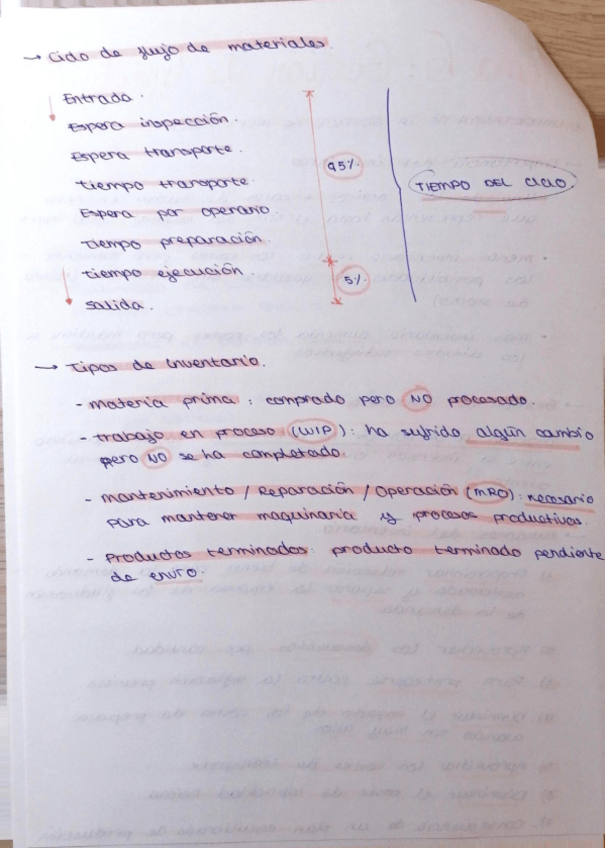 → Ciclo de flujo de materiales.
Entrada.
Espera inspección.
Espera transporte.
tiempo transporte.
Espera por operario
tiempo preparación.
tiempo ejecución.
salida.
95%
5%
TIEMPO DEL CICLO.
→ Tipos de inventario.
- materia prima : comprado pero NO procesado.
- trabajo en proceso (WIP) : ha sufrido algún cambio
pero NO se ha completado.
- mantenimiento / Reparación / Operación (MRO) : necesario
para mantener maquinaria y procesos productivos.
- Productos terminados : producto terminado pendiente
de envío.